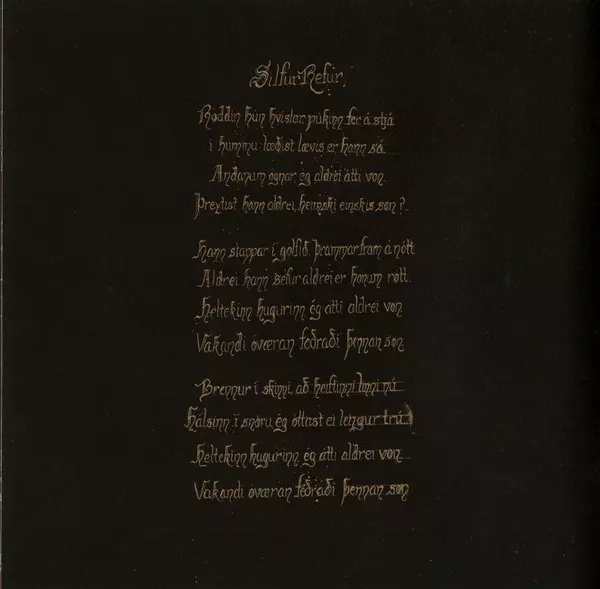 Silfur Refur
Röddin hún hvíslar púkinn fer á stjá
í húmmu læðist lævís er hann sá
Andanum ógnar ég aldrei átti von
Þreytist hann aldrei, heimski einskis son?
Hann stappar í gólfið, þrammar fram á nótt
Aldrei hann sefur aldrei er honum rótt
Heltekinn hugurinn ég átti aldrei von
Vakandi óværan feðraði þennan son
Brennur í skinni, að heiftinni linni nú
Hálsinn í snöru ég óttast ei lengur trú
Heltekinn hugurinn ég átti aldrei von
Vakandi óværan feðraði þennan son